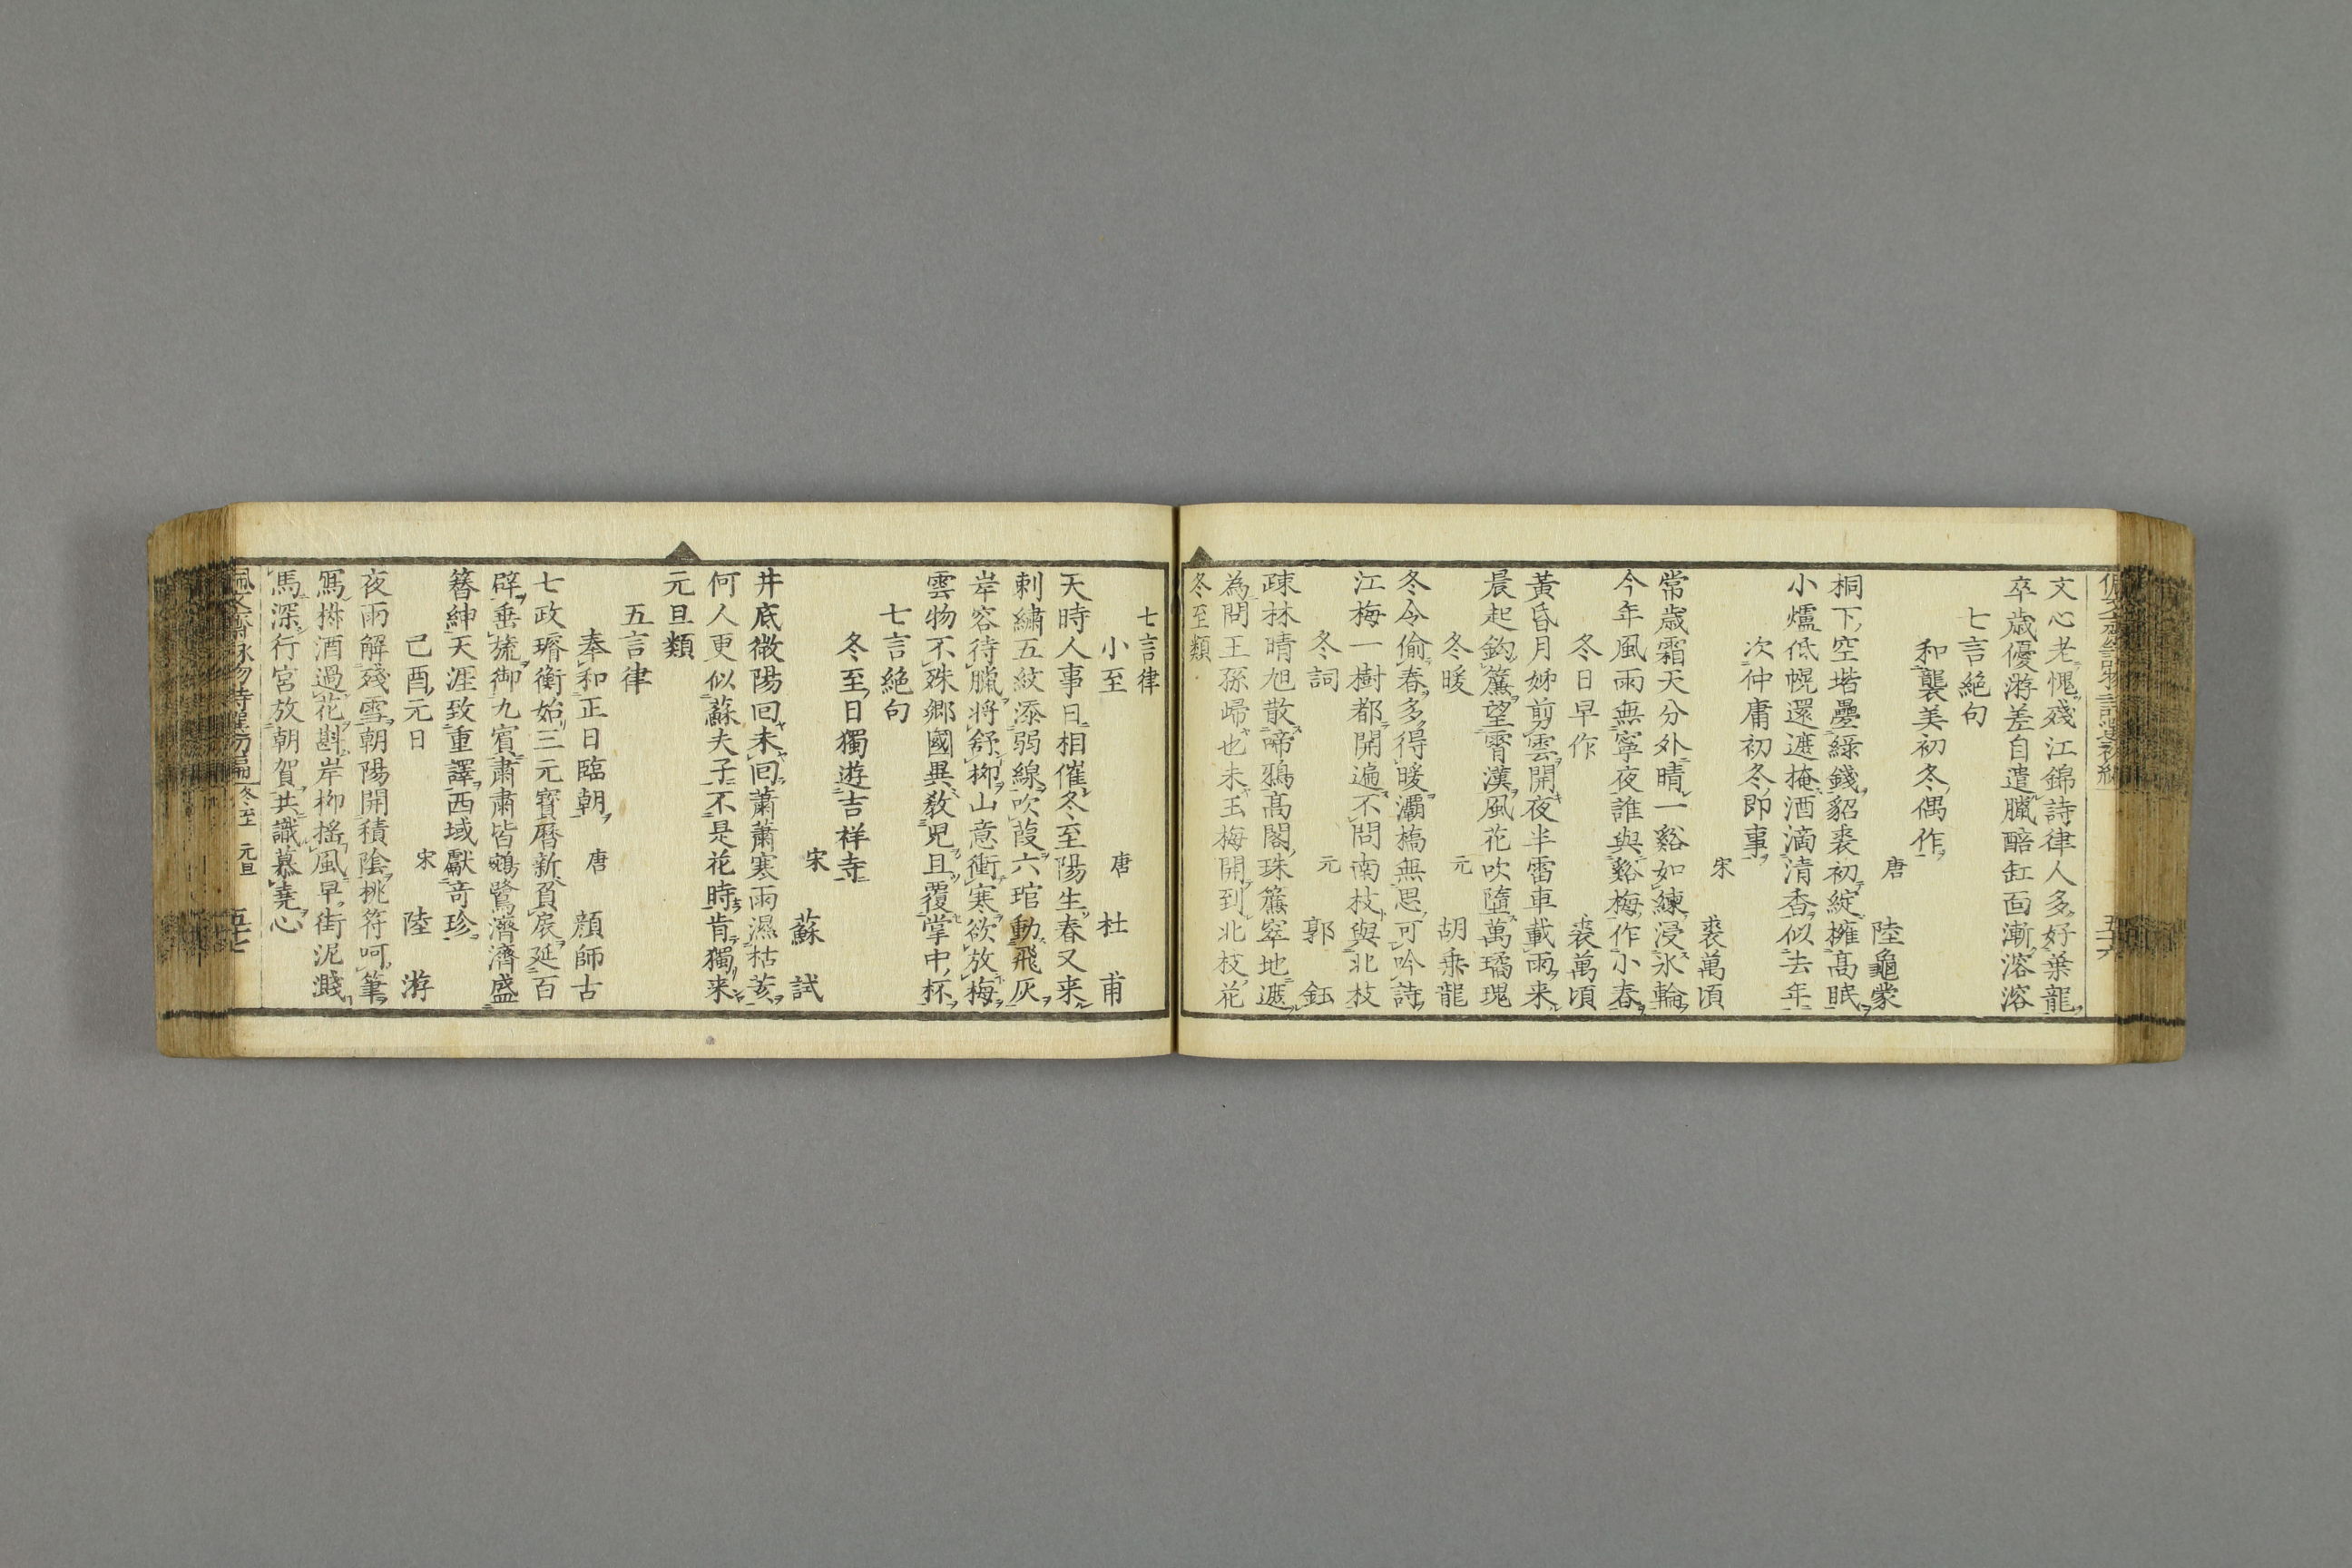 文心老愧殘江錦詩律人多好葉龍
卒歳優游差自遣臘醅缸面漸溶溶
七言絶句
和襲美初冬偶作
唐 陸龜蒙
桐下空堦疊綠錢貂裘初綻擁高眠
小爐低幌還遮掩酒滴清香似去年
次仲庸初冬即事
宋 裘萬頃
常歳霜天分外晴一谿如練浸氷輪
今年風雨無寧夜誰與谿梅作小春
冬日早作 裘萬頃
黃昏月姊剪雲開夜半雷車載雨来
晨起鈎簾望霄漢風花吹墮萬璚瑰
冬暖 元 胡乗龍
冬令偷春多得暖灞橋無思可吟詩
江梅一樹都開遍不問南枝與北枝
冬詞 元 郭鈺
疎林晴旭散啼鴉高閣珠簾窣地遮
為問王孫歸也未玉梅開到北枝花
冬至類
七言律
小至 唐 杜甫
天時人事日相催冬至陽生春又来
刺繡五紋添弱線吹葭六琯動飛灰
岸容待臘将舒柳山意衝寒欲放梅
雲物不殊郷國異敎兒且覆掌中杯
七言絶句
冬至日獨遊吉祥寺
宋 蘇試
井底微陽回未回蕭蕭寒雨濕枯荄
何人更似蘇夫子不是花時肯獨来
元旦類
五言律
奉和正日臨朝 唐 顔師古
七政璿衡始三元寶曆新負扆延百
辟垂旒御九賓肅肅皆鵷鷺濟濟盛
簪紳天涯致重譯西域獻竒珍
己酉元日 宋 陸游
夜雨解殘雪朝陽開積陰桃符呵筆
冩椒酒過花斟岸柳揺風早街泥濺
馬深行宮放朝賀共識慕堯心
冬至 元旦 五十七